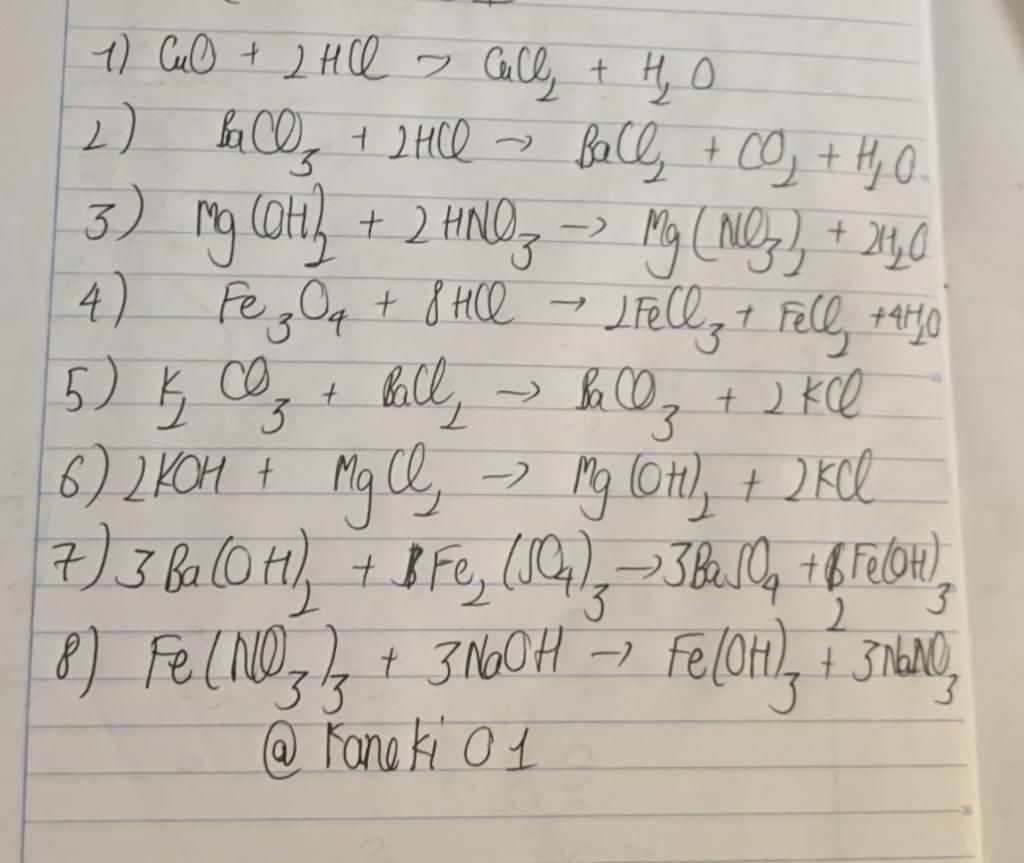 1) CuO + 2HCl → CuCl₂ + H₂O
2) BaCO₃ + 2HCl → BaCl₂ + CO₂ + H₂O
3) Mg(OH)₂ + 2HNO₃ → Mg(NO₃)₂ + 2H₂O
4) Fe₃O₄ + 8HCl → 2FeCl₃ + FeCl₂ + 4H₂O
5) K₂CO₃ + BaCl₂ → BaCO₃ + 2KCl
6) 2KOH + MgCl₂ → Mg(OH)₂ + 2KCl
7) 3Ba(OH)₂ + Fe₂(SO₄)₃ → 3BaSO₄ + 2Fe(OH)₃
8) Fe(NO₃)₃ + 3NaOH → Fe(OH)₃ + 3NaNO₃
@Kaneki01